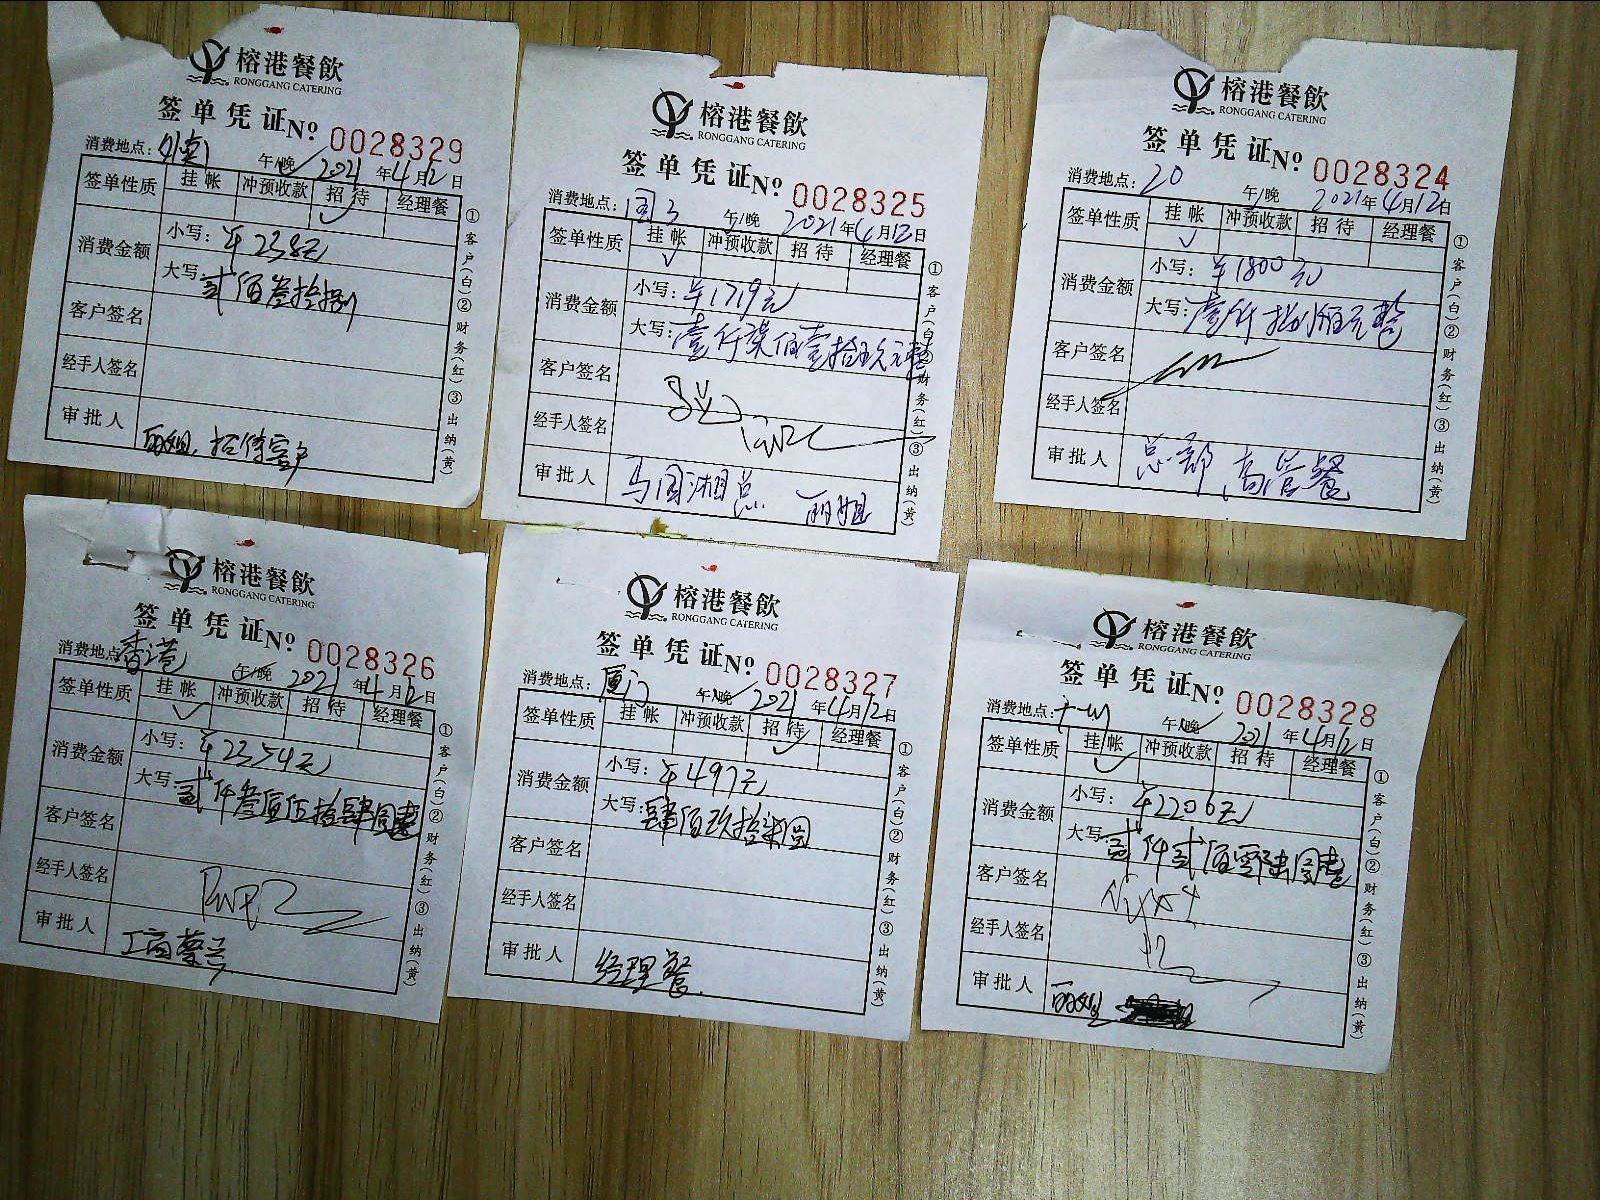 榕港餐飲
RONGGANG CATERING
签单凭证 Nº 0028329
消费地点: 外卖 午/晚 2021年4月12日
签单性质 挂帐 冲预收款 招待 经理餐
消费金额 小写: ¥238元
大写: 贰佰叁拾捌
客户签名
经手人签名
审批人 丽姐 招待客户
①客户(白)②财务(红)③出纳(黄)
榕港餐飲
RONGGANG CATERING
签单凭证 Nº 0028325
消费地点: 午/晚 2021年4月12日
签单性质 挂帐 冲预收款 招待 经理餐
消费金额 小写: ¥1719元
大写: 壹仟柒佰壹拾玖元整
客户签名
经手人签名
审批人 马国湘总 丽姐
①客户(白)②财务(红)③出纳(黄)
榕港餐飲
RONGGANG CATERING
签单凭证 Nº 0028324
消费地点: 20 午/晚 2021年4月12日
签单性质 挂帐 冲预收款 招待 经理餐
消费金额 小写: ¥1800元
大写: 壹仟捌佰元整
客户签名
经手人签名
审批人 总部高管餐
①客户(白)②财务(红)③出纳(黄)
榕港餐飲
RONGGANG CATERING
签单凭证 Nº 0028326
消费地点: 香港 午/晚 2021年4月12日
签单性质 挂帐 冲预收款 招待 经理餐
消费金额 小写: ¥2354元
大写: 贰仟叁佰伍拾肆圆整
客户签名
经手人签名
审批人
①客户(白)②财务(红)③出纳(黄)
榕港餐飲
RONGGANG CATERING
签单凭证 Nº 0028327
消费地点: 厦门 午/晚 2021年4月12日
签单性质 挂帐 冲预收款 招待 经理餐
消费金额 小写: ¥497元
大写: 肆佰玖拾柒圆
客户签名
经手人签名
审批人 经理餐
①客户(白)②财务(红)③出纳(黄)
榕港餐飲
RONGGANG CATERING
签单凭证 Nº 0028328
消费地点: 广州 午/晚 2021年4月12日
签单性质 挂帐 冲预收款 招待 经理餐
消费金额 小写: ¥2206元
大写: 贰仟贰佰零陆圆整
客户签名
经手人签名
审批人 丽姐
①客户(白)②财务(红)③出纳(黄)